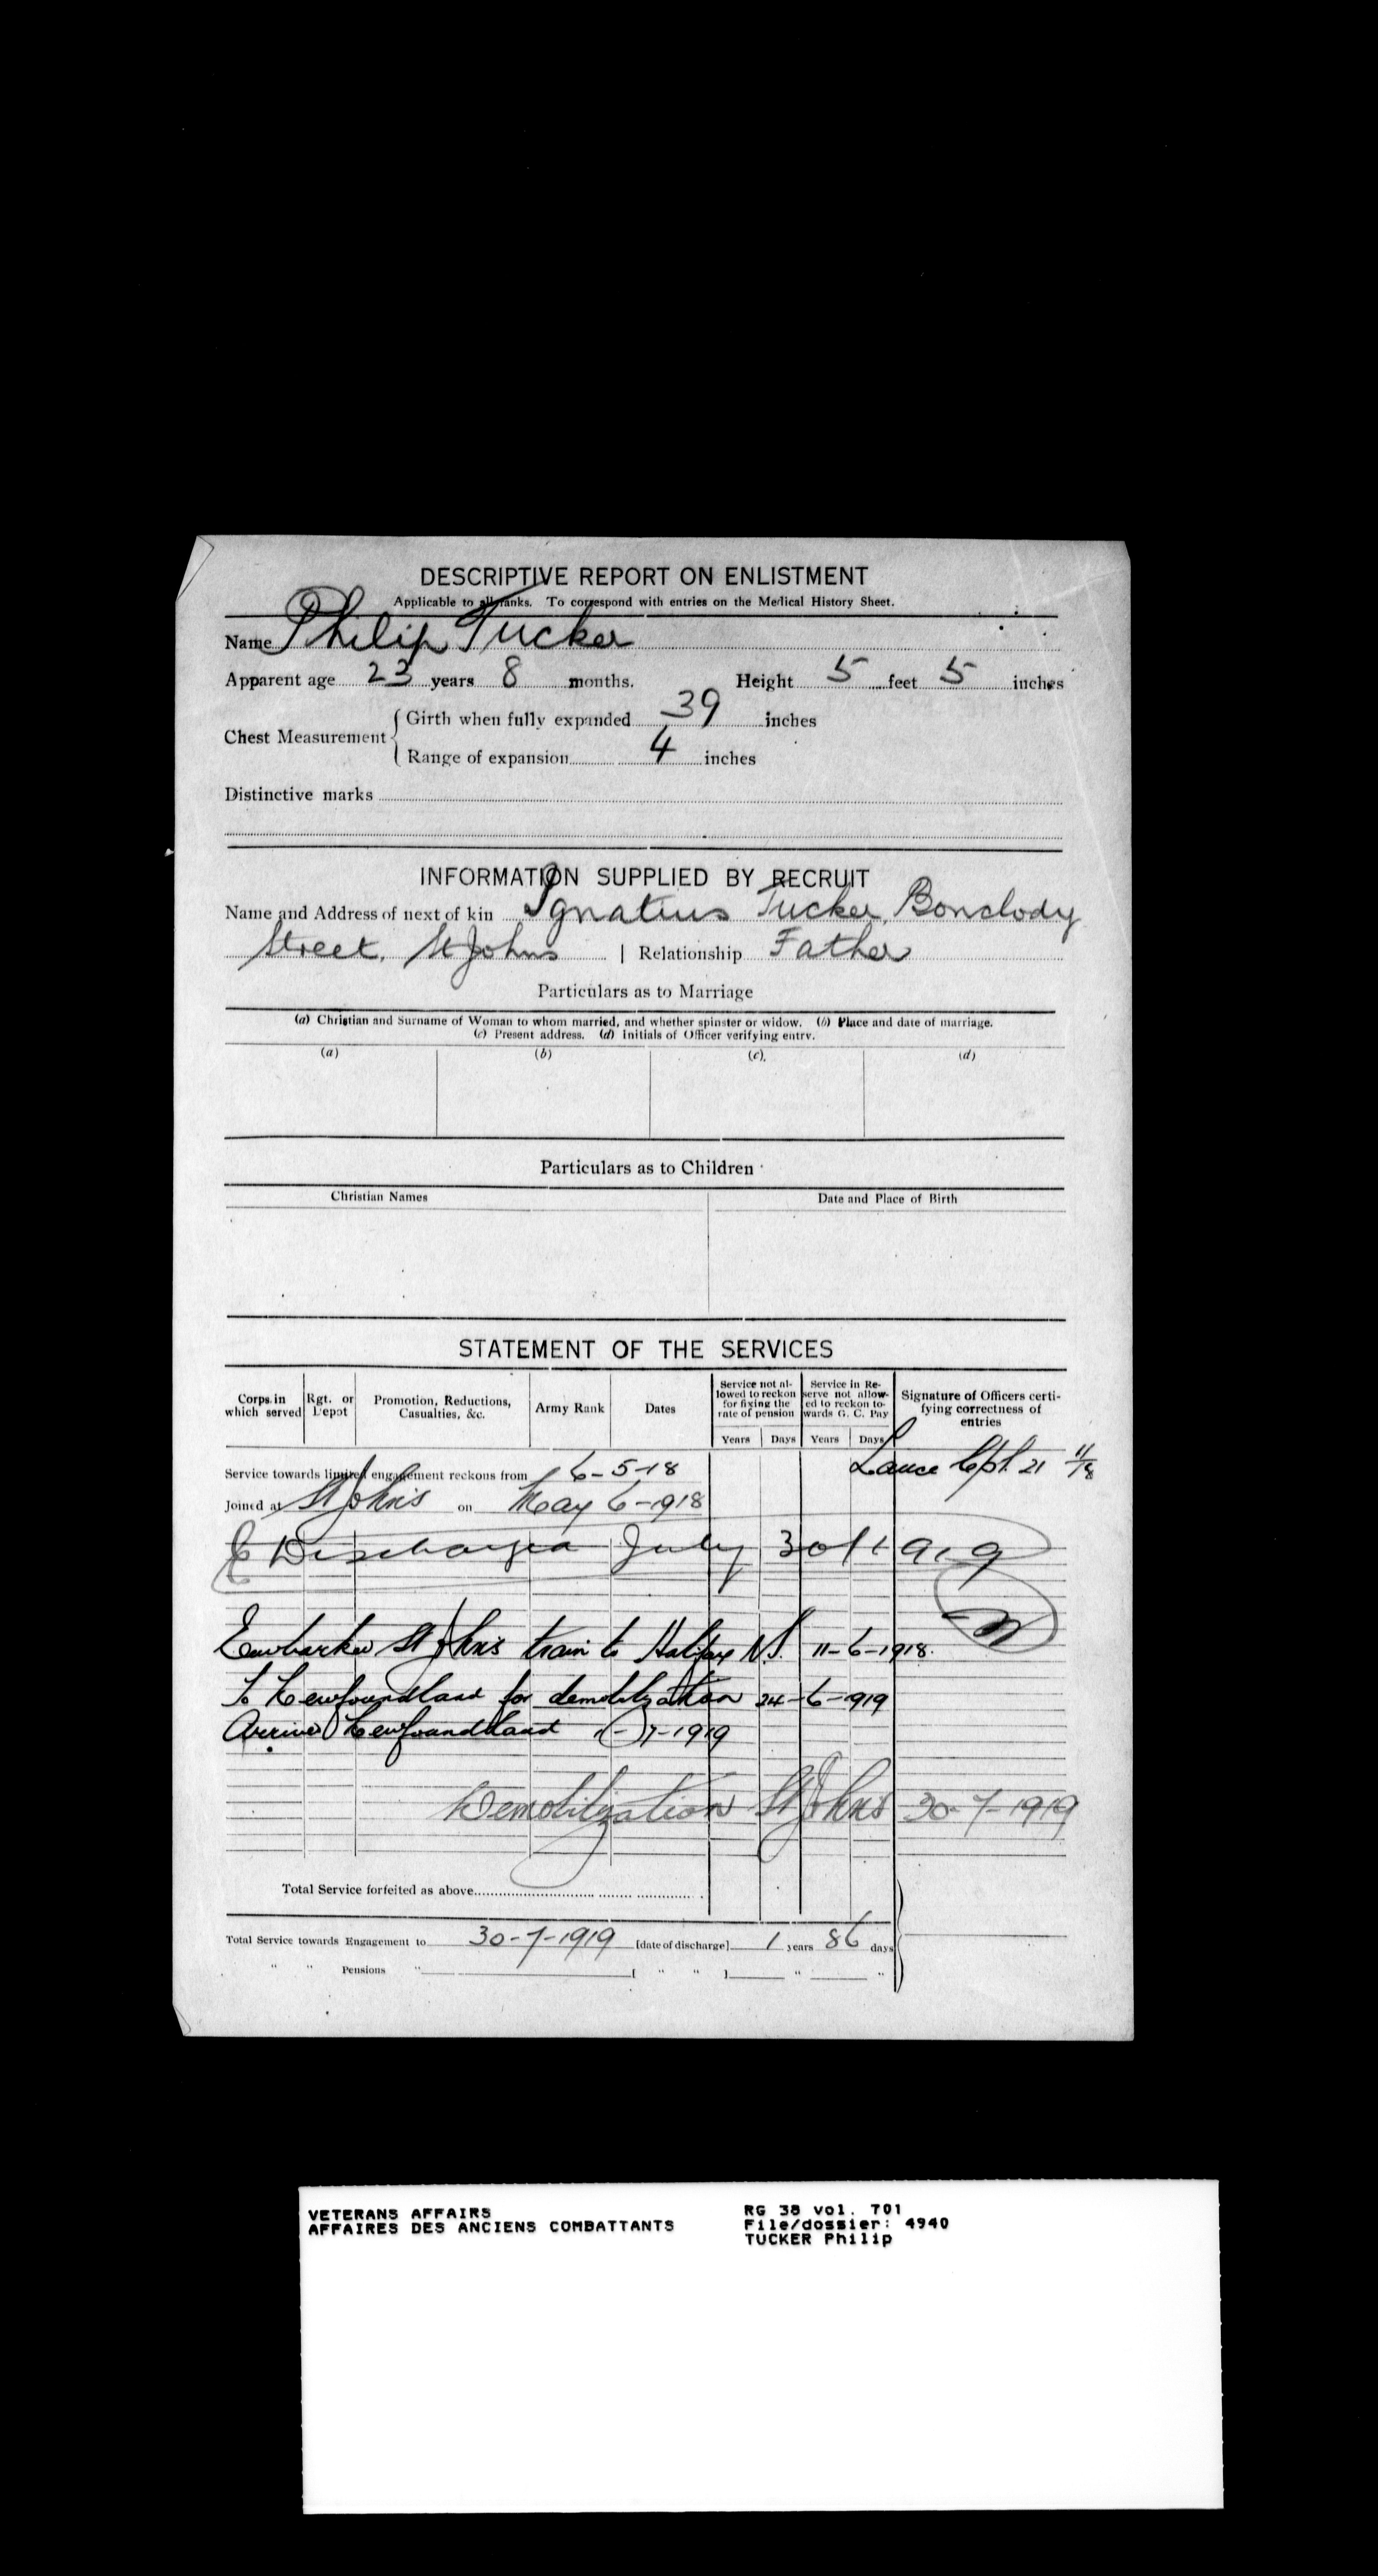 DESCRIPTIVE REPORT ON ENLISTMENT
Applicable to all ranks. To correspond with entries on the Medical History Sheet.
Name Philip Tucker
Apparent age 23 years 8 months. Height 5 feet 5 inches
Chest Measurement { Girth when fully expanded 39 inches
Range of expansion 4 inches
Distinctive marks
INFORMATION SUPPLIED BY RECRUIT
Name and Address of next of kin Ignatius Tucker, Bonclody
Street, St Johns | Relationship Father
Particulars as to Marriage
(a) Christian and Surname of Woman to whom married, and whether spinster or widow. (b) Place and date of marriage.
(c) Present address. (d) Initials of Officer verifying entry.
(a) (b) (c). (d)
Particulars as to Children
Christian Names Date and Place of Birth
STATEMENT OF THE SERVICES
Corps in which served Rgt. or Depot Promotion, Reductions, Casualties, &c. Army Rank Dates Service not allowed to reckon for fixing the rate of pension Service in Reserve not allowed to reckon towards G. C. Pay Signature of Officers certifying correctness of entries
Years Days Years Days
Lance Cpl. 21 11/18
Service towards limited engagement reckons from 6-5-18
Joined at St John's on May 6-1918
Discharged July 30/1919
Embarked St John's train to Halifax N.S. 11-6-1918.
To Newfoundland for demobilization 24-6-1919
Arrived Newfoundland 7-1919
Demobilization St Johns 30-7-1919
Total Service forfeited as above
Total Service towards Engagement to 30-7-1919 [date of discharge] 1 years 86 days
" " Pensions " [ " " ] " "
VETERANS AFFAIRS
AFFAIRES DES ANCIENS COMBATTANTS
RG 38 vol. 701
File/dossier: 4940
TUCKER Philip